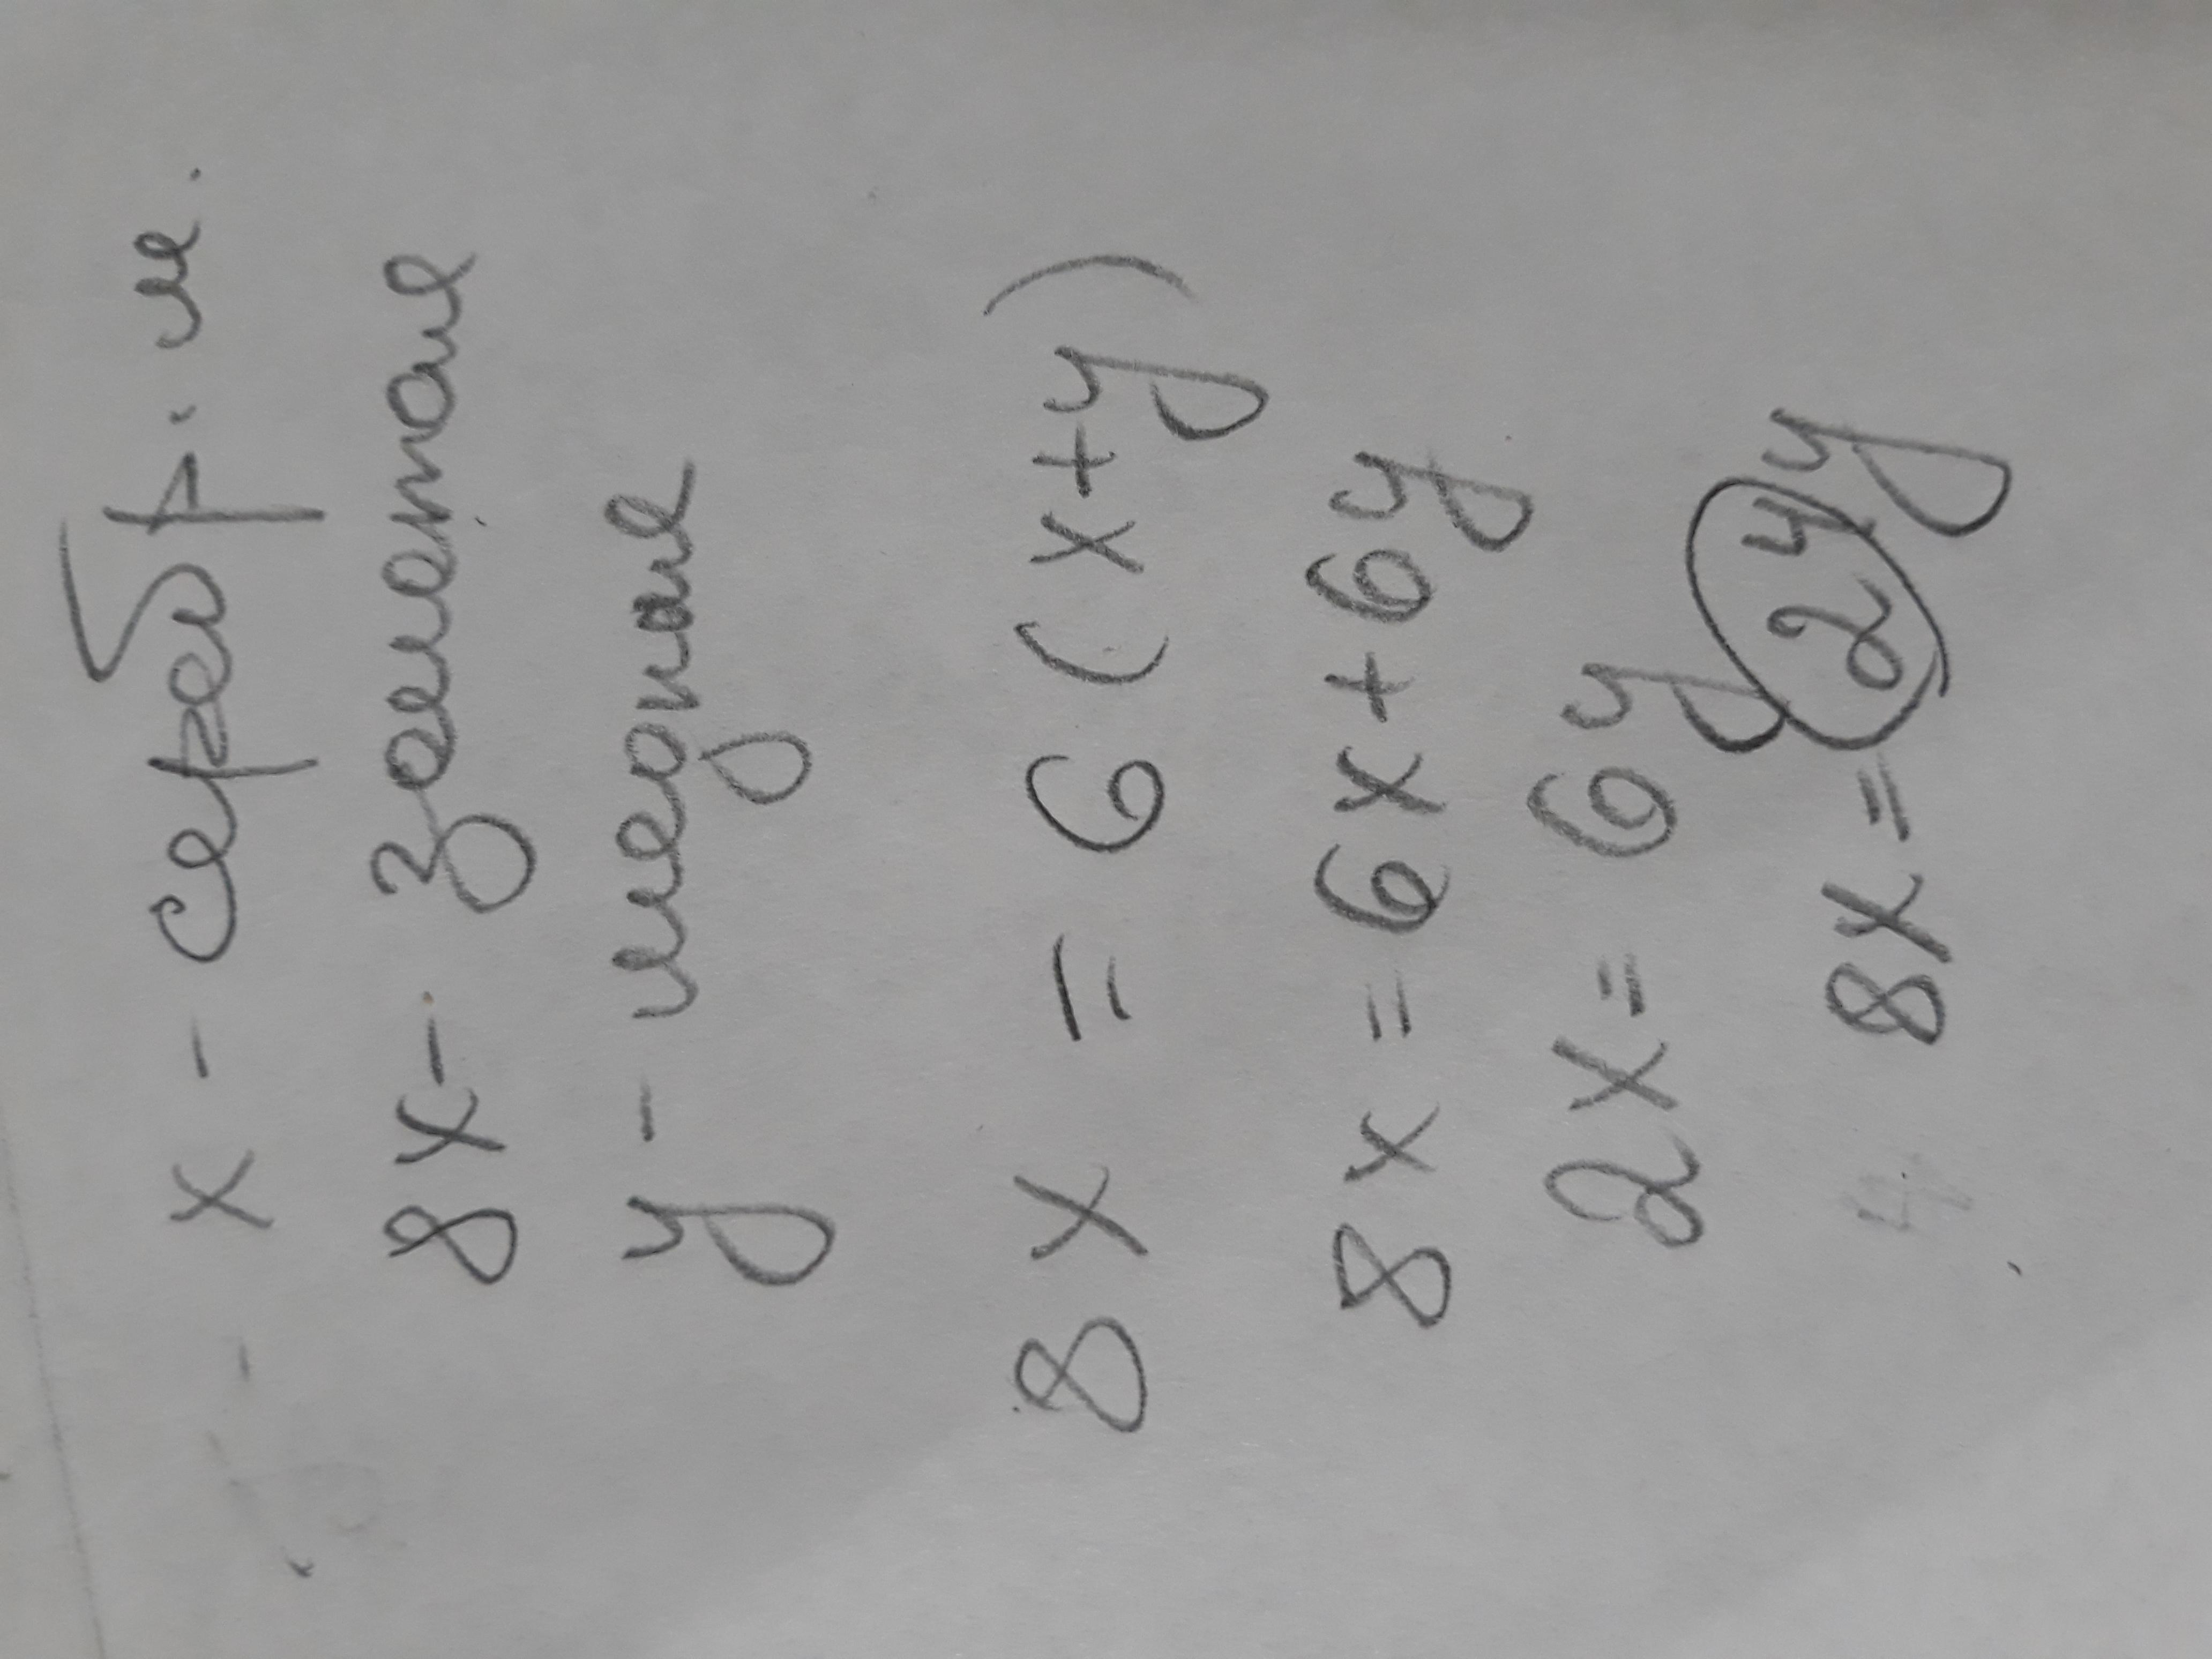 x - серебр. м.
8x - золотая
y - медная
8x = 6(x+y)
8x = 6x+6y
2x = 6y
8x = 24y